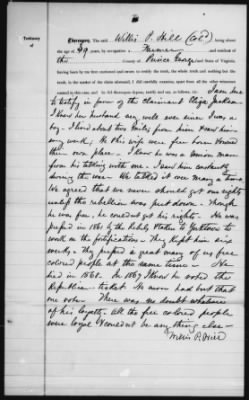 Testimony of
Thereupon, The said Willis P. Hill (Col.) being about
the age of 29 years, by occupation a Farmer and resident of
the County of Prince George and State of Virginia,
having been by me first cautioned and sworn to testify the truth, the whole truth, and nothing but the
truth in the matter of the aforesaid claim
I am here
to testify in favor of the claimant Eliza Jackson
I knew her husband very well ever since I was a
boy. I lived about two miles from him
He & his wife were free born &
their own place. I know he was a Union man
from his talking with me. I saw him constantly
during the war. We talked it over many a time
We agreed that we never should get our rights
until the rebellion was put down. Though
he was free, he could not get his rights. He was
pressed in 1861 by the Rebels & taken to Yorktown to
work on the fortifications. They kept him six
weeks. They pressed a great many of us free
colored people at the same time. He
died in 1868. In 1867 I know he voted the
Republican ticket. He never had but that
one vote. There was no doubt whatever
of his loyalty. All the free colored people
were loyal & could not be any thing else
Willis P. Hill